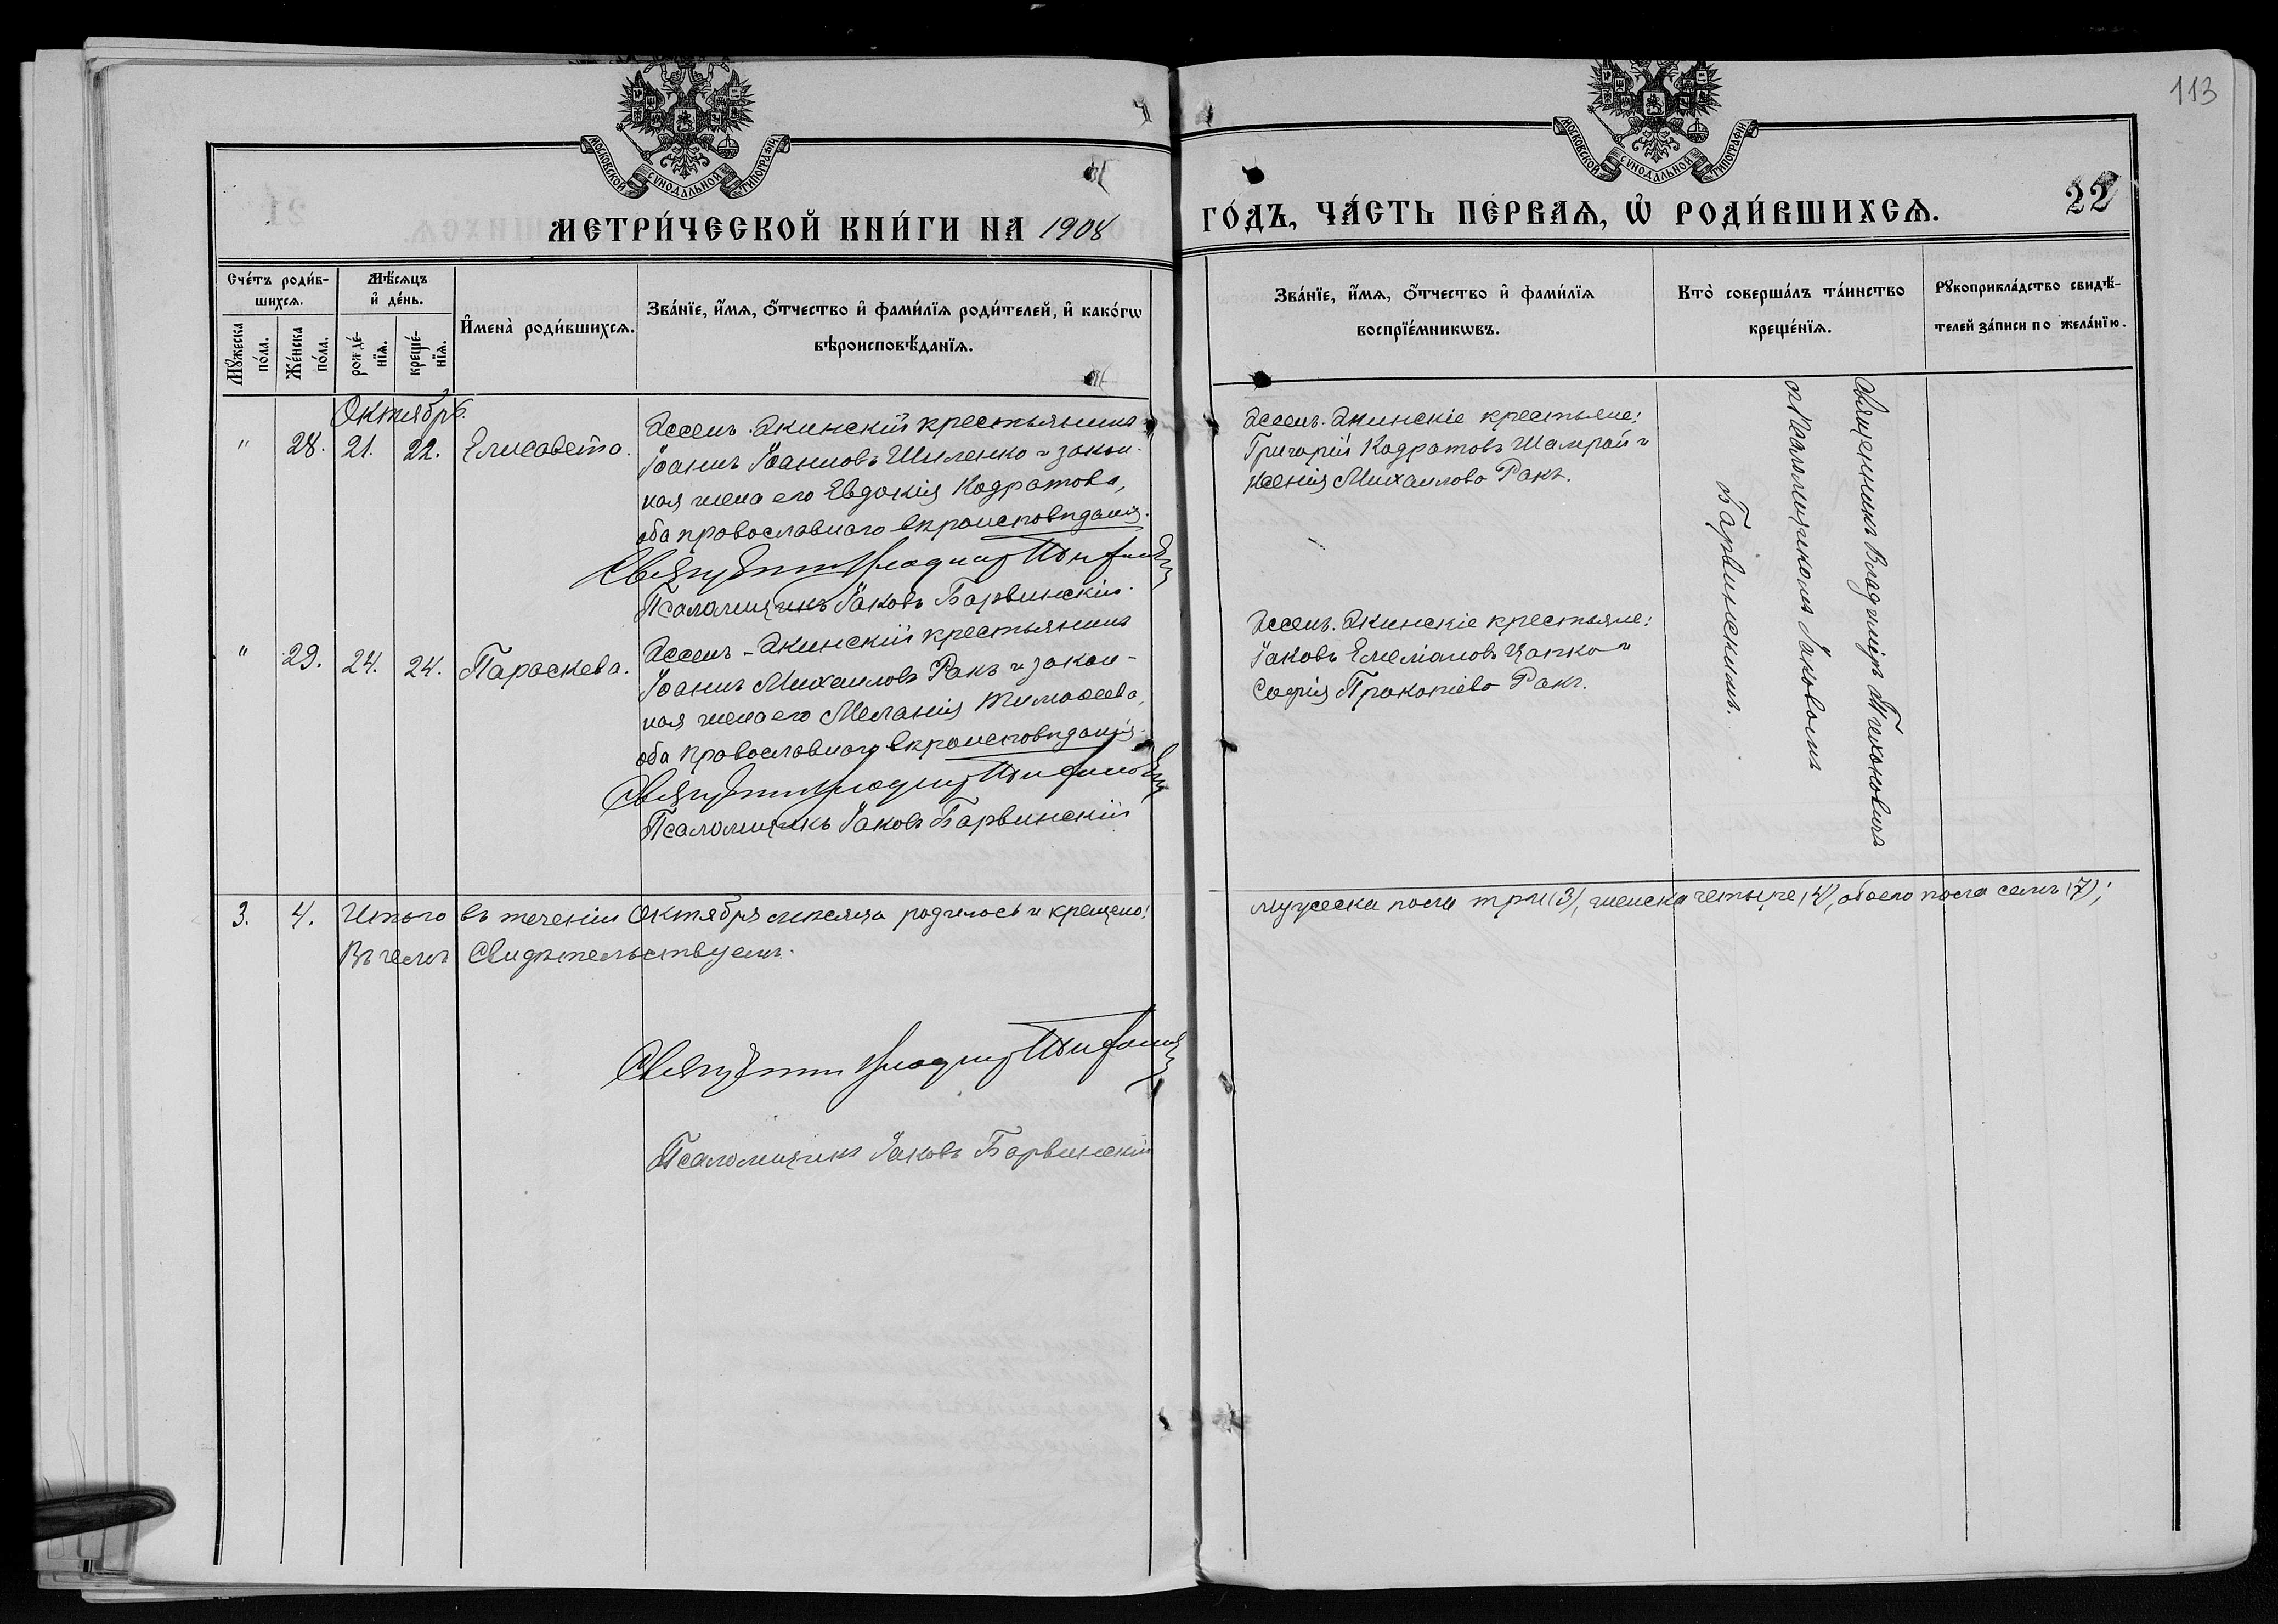 113
МОСКОВСКОЙ СѴНОДАЛЬНОЙ ТИПОГРАФІИ
МОСКОВСКОЙ СѴНОДАЛЬНОЙ ТИПОГРАФІИ
МЕТРИ́ЧЕСКОЙ КНИ́ГИ НА 1908
ГО́ДЪ, ЧА́СТЬ ПЕ́РВАѦ, Ѡ҆ РОДИ́ВШИХСѦ.
22
Сче́тъ роди́в-
шихсѧ.
Мꙋ́жеска
по́ла.
Же́нска
по́ла.
Мѣ́сѧцъ
и҆ де́нь.
рожде́-
нїѧ.
креще́-
нїѧ.
И҆мена̀ роди́вшихсѧ.
Зва́нїе, и҆́мѧ, ѻ҆́тчество и҆ фами́лїѧ роди́телей, и҆ како́гѡ
вѣроисповѣ́данїѧ.
Зва́нїе, и҆́мѧ, ѻ҆́тчество и҆ фами́лїѧ
воспрїе́мникѡвъ.
Кто̀ соверша́лъ та́инство
креще́нїѧ.
Рꙋкоприкла́дство свидѣ́-
телей за́писи по жела́нїю.
Октябрь.
" 28. 21. 22. Елисавета.
Ассенъ-Акинскій крестьянинъ
Іоаннъ Іоанновъ Шиленко и закон-
ная жена его Евдокія Кодратова,
оба православнаго вѣроисповѣданія.
Псаломщикъ Іаковъ Барвинскій.
Ассенъ-Акинскіе крестьяне:
Григорій Кодратовъ Шамрай и
Ксенія Михаилова Ракъ.
Священникъ Владиміръ Тихоновичъ
съ Псаломщикомъ Іаковомъ
Барвинскимъ.
" 29. 24. 24. Параскева.
Ассенъ-Акинскій крестьянинъ
Іоаннъ Михаиловъ Ракъ и закон-
ная жена его Меланія Тимоѳеева,
оба православнаго вѣроисповѣданія.
Псаломщикъ Іаковъ Барвинскій
Ассенъ-Акинскіе крестьяне:
Іаковъ Емеліановъ Цапко и
Софія Прокопіева Ракъ.
3. 4. Итого въ теченіи Октября мѣсяца родилось и крещено:
мужеска пола три (3), женска четыре (4), обоего пола семь (7);
Въ чемъ Свидѣтельствуемъ.
Псаломщикъ Іаковъ Барвинскій